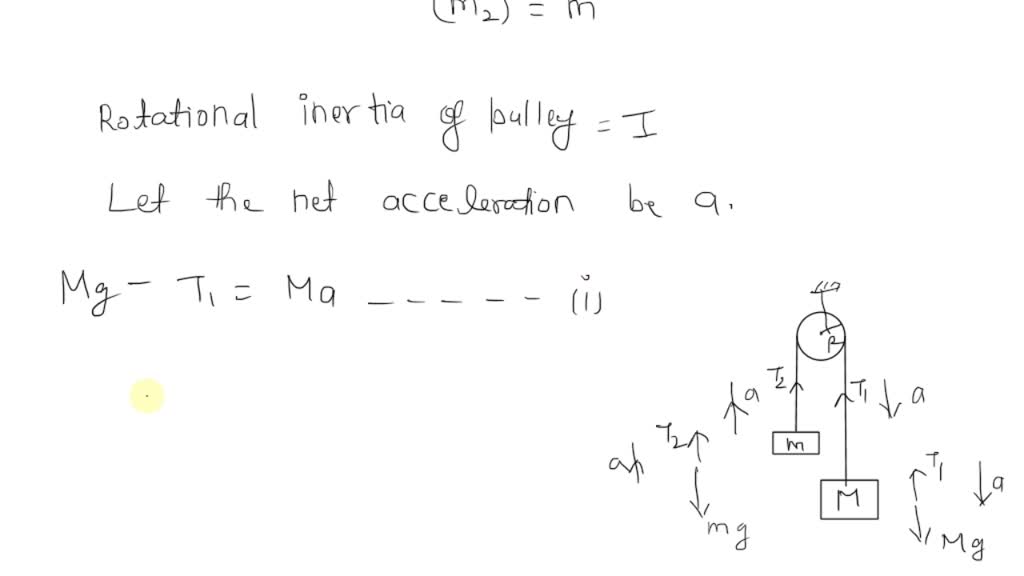 (m2) = m
Rotational inertia of pulley = I
Let the net acceleration be a.
Mg - T1 = Ma ------ (i)
R
T2
T1
a
a
m
M
T2
a
mg
T1
a
Mg